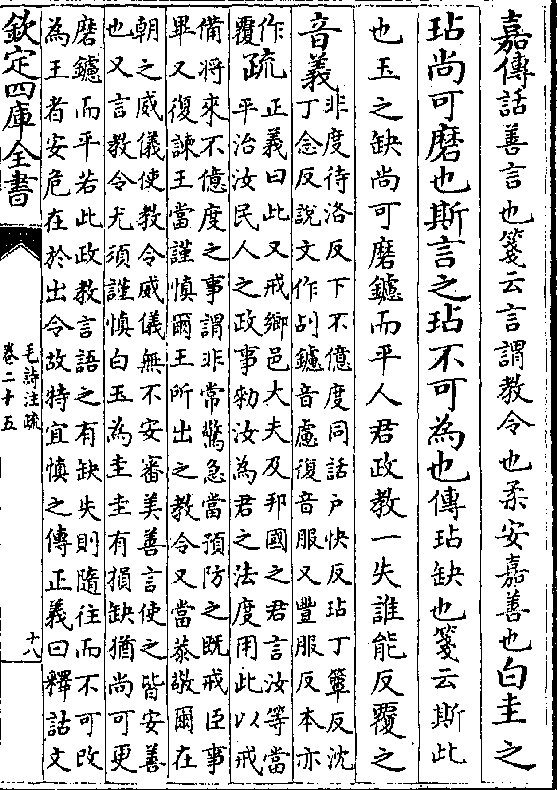 嘉傳話善言也箋云言謂教令也柔安嘉善也白圭之
玷尚可磨也斯言之玷不可為也傳玷缺也箋云斯此
也玉之缺尚可磨鑢而平人君政教一失誰能反覆之
音義非度待洛反下不億度同話户快反玷丁簟反沈
丁念反說文作㓠鑢音慮復音服又豐服反本亦
作覆疏正義曰此又戒鄉邑大夫及邦國之君言汝等當
平治汝民人之政事勑汝為君之法度用此以戒
備將來不億度之事謂非常驚急當預防之既戒臣事
畢又復諫王當謹慎爾王所出之教令又當恭敬爾在
朝之威儀使教令威儀無不安審美善言使之皆安善
也又言教令尤須謹慎白玉為圭圭有損缺猶尚可更
磨鑢而平若此政教言語之有缺失則隨往而不可改
為王者安危在於出令故特宜慎之傳正義曰釋詁文
欽定四庫全書
毛詩注疏
卷二十五
十八